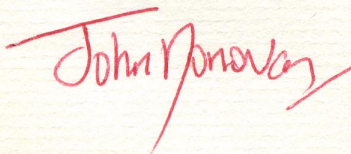 John Donovan